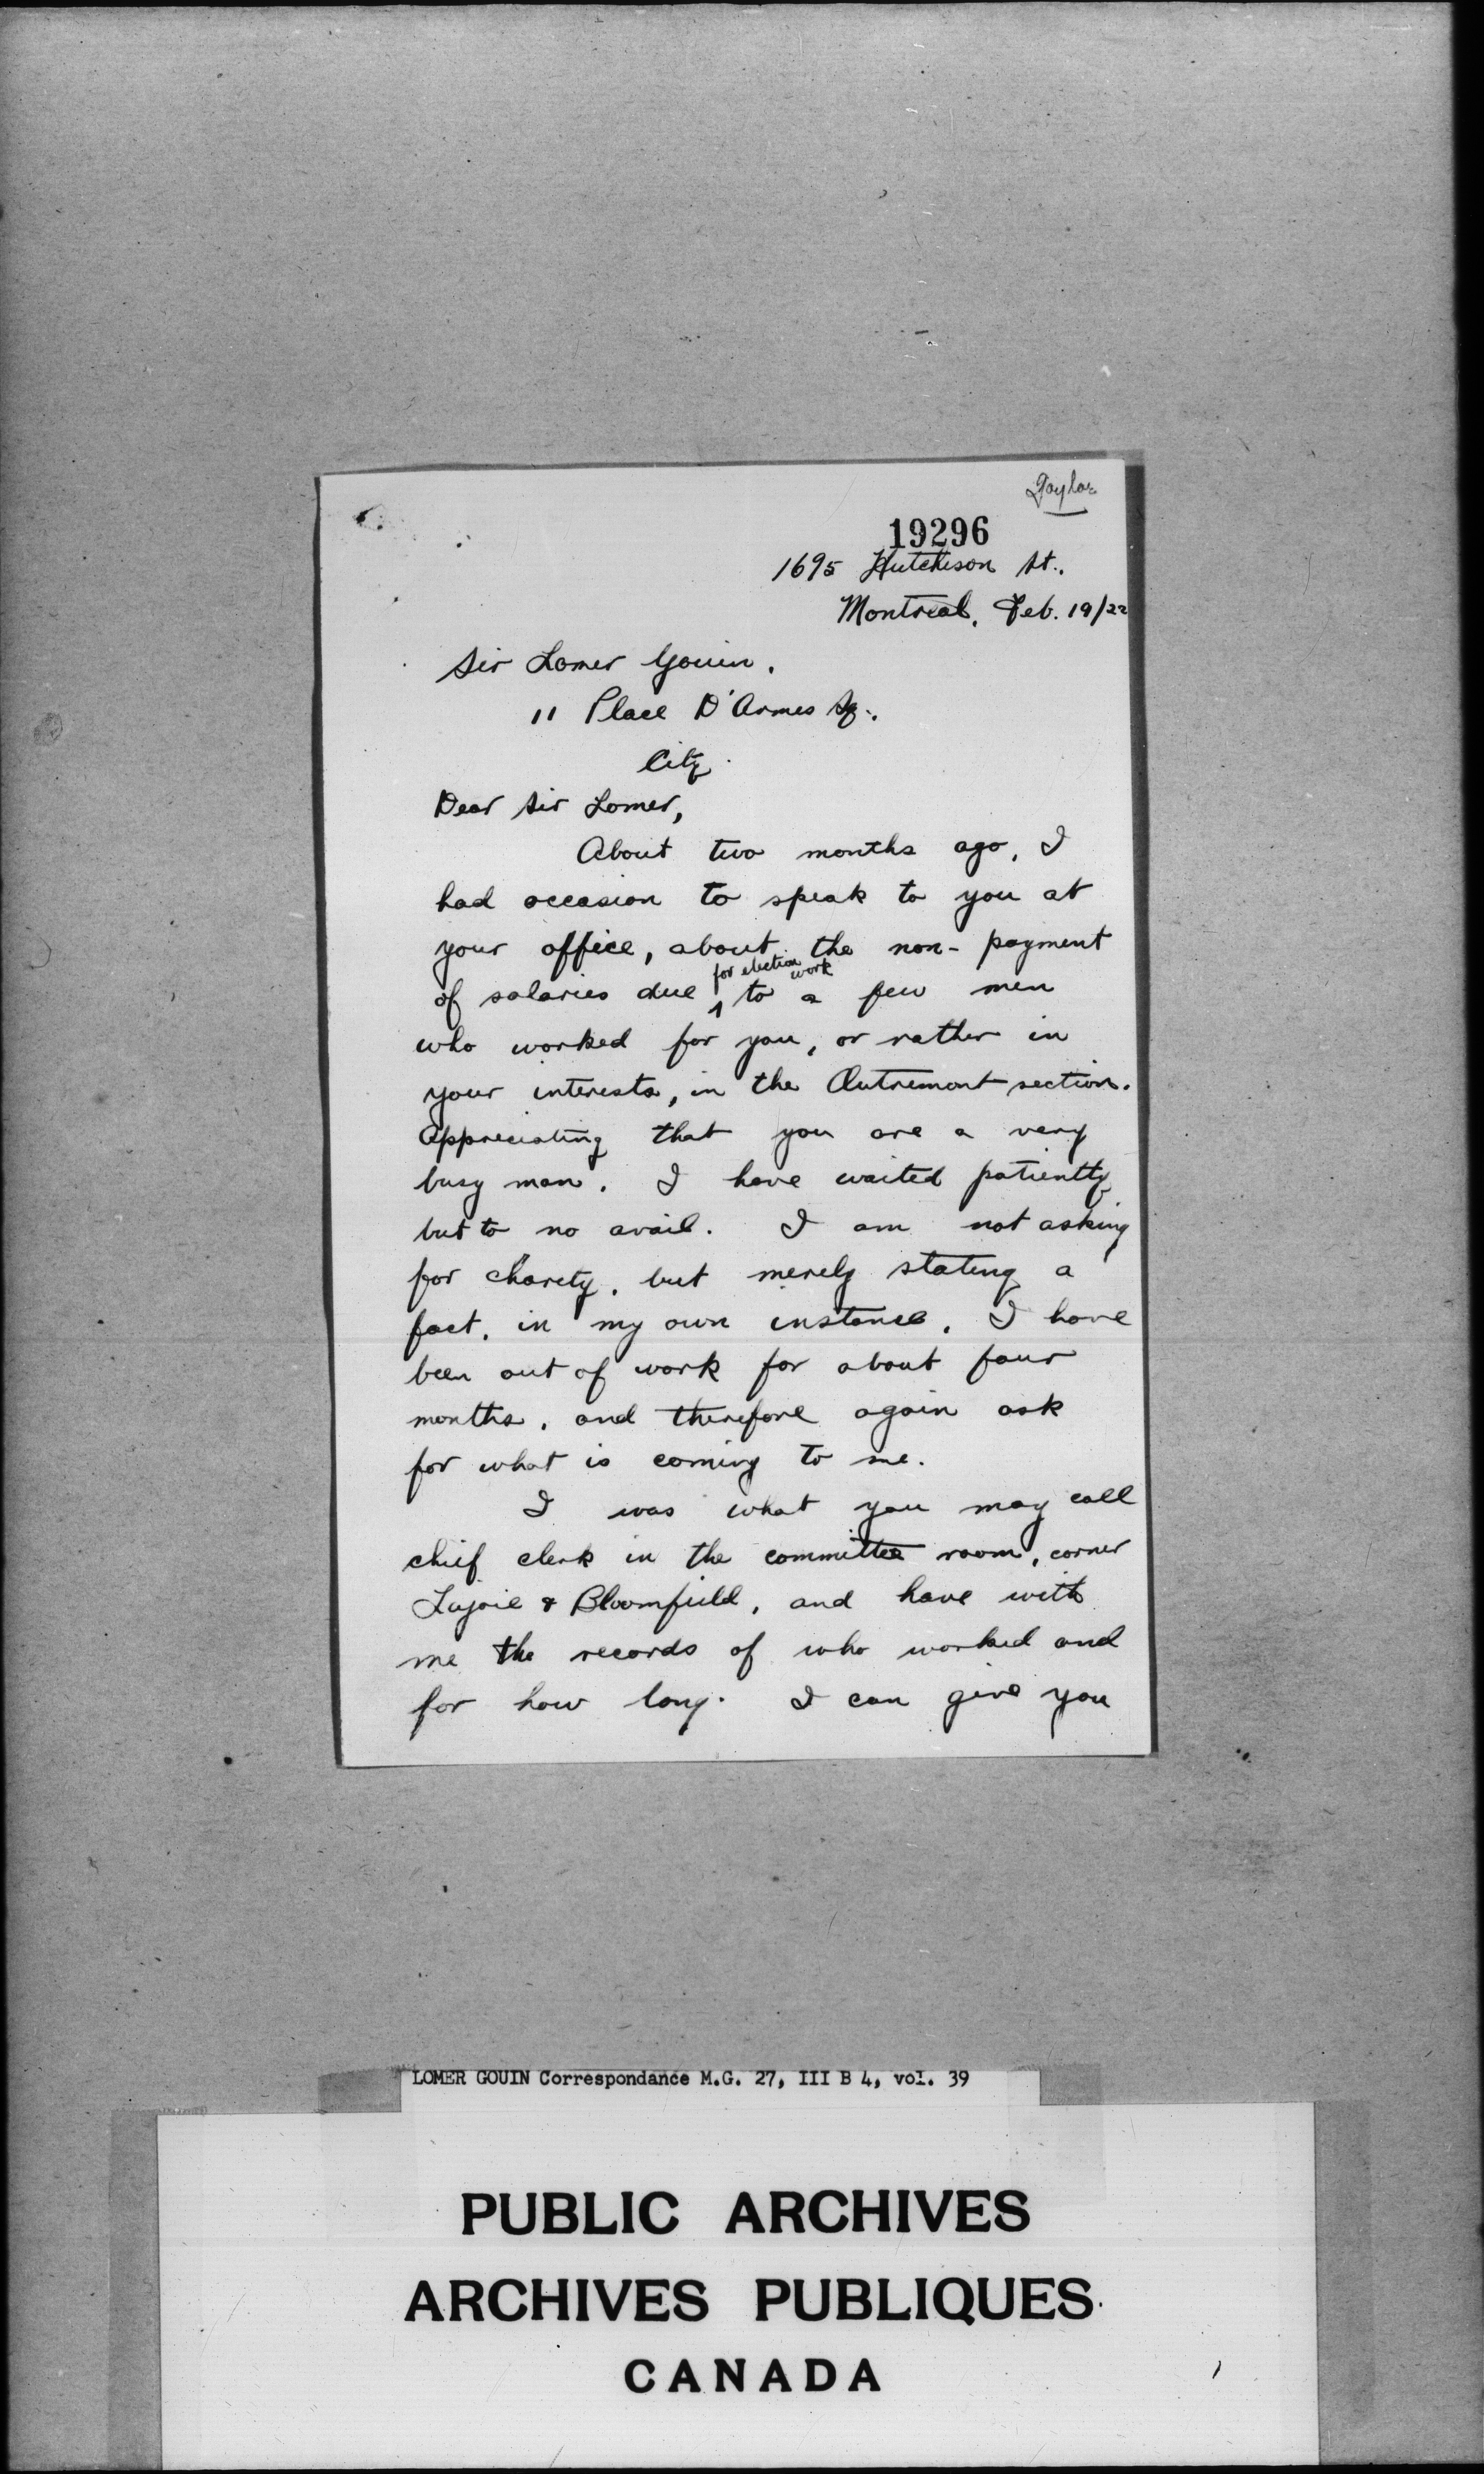 Taylor
19296
1695 Hutchison St.,
Montreal, Feb. 19/22
Sir Lomer Gouin,
11 Place D'Armes Sq.,
City.
Dear Sir Lomer,
About two months ago, I
had occasion to speak to you at
your office, about the non-payment
for election work
of salaries due ^ to a few men
who worked for you, or rather in
your interests, in the Outremont section.
Appreciating that you are a very
busy man, I have waited patiently
but to no avail. I am not asking
for charity, but merely stating a
fact, in my own instance, I have
been out of work for about four
months, and therefore again ask
for what is coming to me.
I was what you may call
chief clerk in the committee room, corner
Lajoie & Bloomfield, and have with
me the records of who worked and
for how long. I can give you
LOMER GOUIN Correspondance M.G. 27, III B 4, vol. 39
PUBLIC ARCHIVES
ARCHIVES PUBLIQUES
CANADA